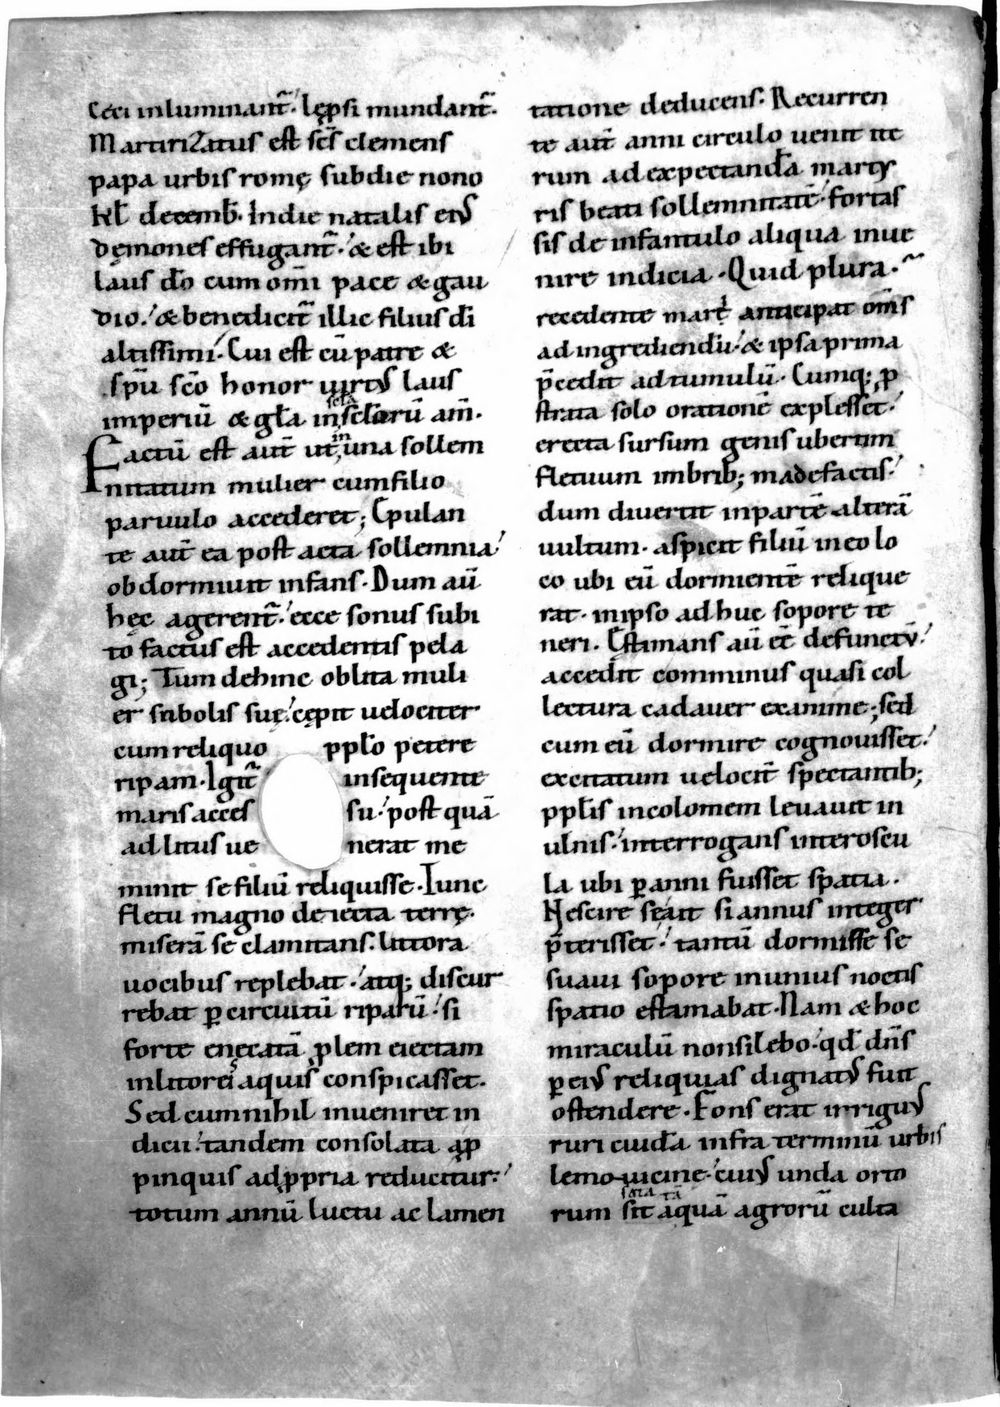 Cęci inluminant̄. lęp̄si mundant̄.
MartiriZatus est sc̄s clemens
papa urbis romę sub die nono
kl̄ decemb̄. In die natalis eiꝰ
dęmones effugant̄. & est ibi
laus dō cum om̄i pace & gau
dio. & benedicit̄ illic filius dī
altissimi. Cui est cū patre &
sp̄u sc̄o honor uirtꝰ laus
imperiū & gl̄a in sclōrū am̄.
Factū est aut̄ ut in una sollem
nitatum mulier cum filio
paruulo accederet; Epulan
te aut̄ ea post acta sollemnia
obdormiuit infans. Dum aū
hęc agerent̄. ecce sonus subi
to factus est accedentis pela
gi; Tum dehinc oblita muli
er subolis suę. cępit uelociter
cum reliquo ppl̄o petere
ripam. Igit̄ insequente
maris acces su. post quā
ad litus ue nerat me
minit se filiū reliquisse. Tunc
fletu magno deiecta terrę.
miserā se clamitans. littora
uocibus replebat. atq; discur
rebat ꝑ circuitū riparū. si
forte enęcatā ꝓlem eiectam
in litoreis aquis conspicasset.
Sed cum nihil inueniret in
dicii. tandem consolata a ꝓ
pinquis ad ꝓpria reducitur.
totum annū luctu ac lamen
tatione deducens. Recurren
te aut̄ anni circulo uenit ite
rum ad expectanda martẏ
ris beati sollemnitatē. fortas
sis de infantulo aliqua inue
nire indicia. Quid plura.
recedente mari anticipat om̄s
ad ingrediendū. & ipsa prima
p̄cedit ad tumulū. Cumq; ꝓ
strata solo orationē explesset.
erecta sursum genis ubertim
fletuum imbrib; madefactis.
dum diuertit in partē alterā
uultum. aspicit filiū in eo lo
co ubi eū dormientē relique
rat. in ipso adhuc sopore te
neri. Estimans aū eē defunctū.
accedit comminus quasi col
lectura cadauer exanime; sed
cum eū dormire cognouisset.
excitatum uelocit̄ spectantib;
ppl̄is incolomem leuauit in
ulnis. interrogans inter oscu
la ubi ꝑ anni fuisset spatia.
Nescire se ait si annus integer
p̄terisset. tantū dormisse se
suaui sopore munius noctis
spatio estamabat. Nam & hoc
miraculū non silebo. qd̄ dn̄s
ꝑ eiꝰ reliquias dignatꝰ fuit
ostendere. Fons erat irriguꝰ
ruri cuidā infra terminū urbis
lemouicinę. cuiꝰ unda orto
rum sit aquā agrorū culta